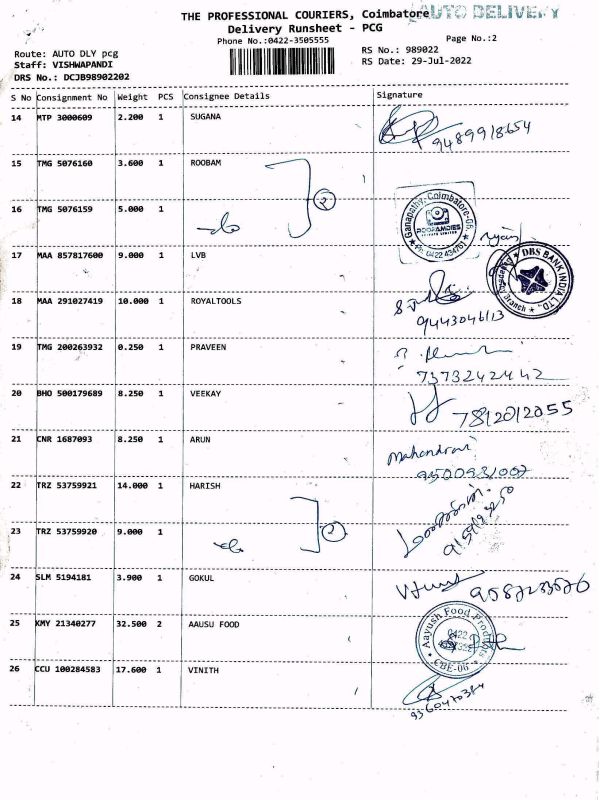 AUTO DELIVERY
THE PROFESSIONAL COURIERS, Coimbatore
Delivery Runsheet - PCG
Phone No.:0422-3505555
Page No.:2
Route: AUTO DLY pcg
RS No.: 989022
Staff: VISHWAPANDI
RS Date: 29-Jul-2022
DRS No.: DCJB98902202
S No Consignment No Weight PCS Consignee Details Signature
14 MTP 3000609 2.200 1 SUGANA
9489918654
15 TMG 5076160 3.600 1 ROOBAM
2
16 TMG 5076159 5.000 1
Ganapathy, Coimbatore-06.
17 MAA 857817600 9.000 1 LVB
DBS BANK INDIA LTD.,
Branch
18 MAA 291027419 10.000 1 ROYALTOOLS
9443046113
19 TMG 200263932 0.250 1 PRAVEEN
7373242442
20 BHO 500179689 8.250 1 VEEKAY
7812012055
21 CNR 1687093 8.250 1 ARUN
9500931007
22 TRZ 53759921 14.000 1 HARISH
2
23 TRZ 53759920 9.000 1
24 SLM 5194181 3.900 1 GOKUL
25 KMY 21340277 32.500 2 AAUSU FOOD
Aayush Food Products
0422
CBE-06
26 CCU 100284583 17.600 1 VINITH